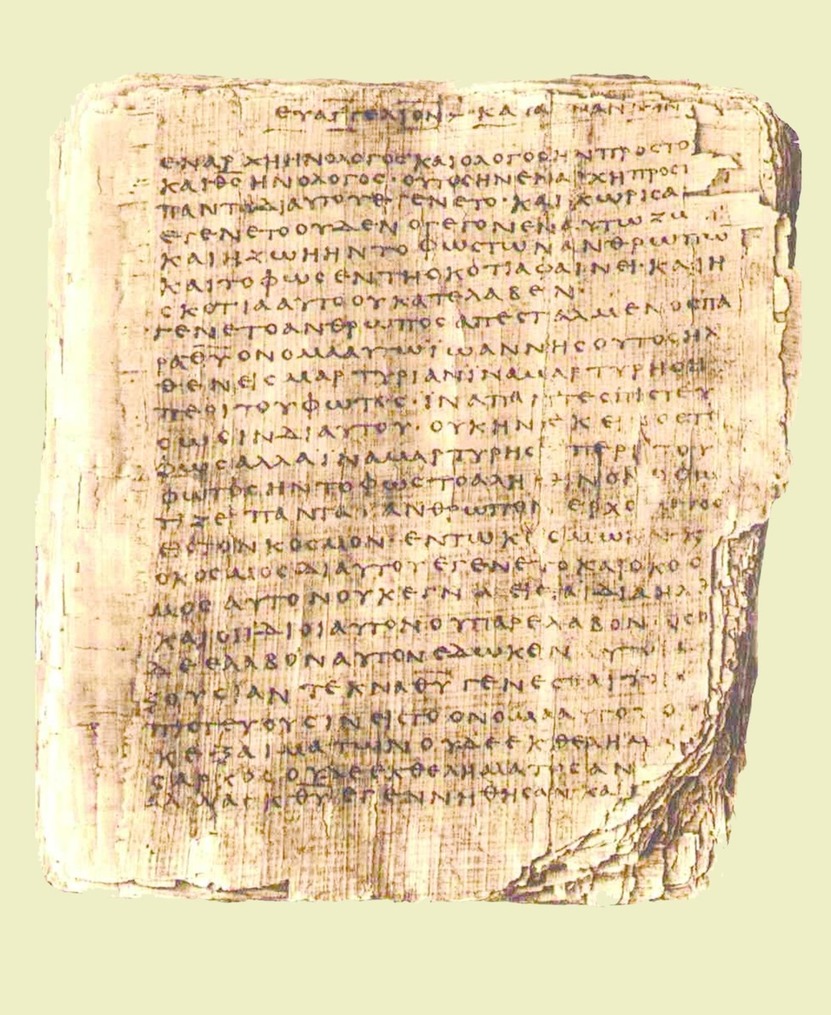 ευαγγελιον κατα ϊωαννην
εναρχηηνολογοσκαιολογοσηνπροστο
καιθ̅σ̅ηνολογος·ουτοσηνεναρχηπροστ
πανταδιαυτουεγενετο·καιχωρισα
εγενετοουδενογεγονενεναυτωζω
καιηζωηηντοφωστωνανθρωπω
καιτοφωσεντησκοτιαφαινει·καιη
σκοτιααυτοουκατελαβεν·
γενετοανθρωποσαπεσταλμενοσπα
ραθ̅υ̅ονομααυτωϊωαννησουτοσηλ
θενεισμαρτυριανιναμαρτυρηση
περιτουφωτοσ·ιναπαντεσπιστευ
σωσινδιαυτου·ουκηνεκεινοστ
φωσαλλαιναμαρτυρηση περιτου
φωτοσηντοφωστοαληθινονοφω
τιζειπαντα ανθρωπον ερχομενον
εισтονκοσμον·εντωκοσμωηνκ
οκοσμοσδιαυτουεγενετοκαιοκοσ
μοσαυτονουκεγνω εισταιδιαηλ
καιοιϊδιοιαυτονουπαρελαβον·οσοι
δεελαβοναυτονεδωκεν αυτοισ
ξουσιαν τεκναθ̅υ̅γενεσθαιτοισ
πιστευουσινειστοονομααυτου ο
κεξαιματωνουδεεκθελημ
σαρκοσουδεεκθεληματοσαν
αλλαεκθ̅υ̅εγεννηθησαν·και